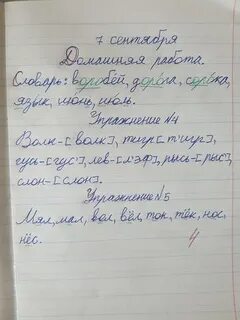 7 сентября
Домашняя работа.
Словарь: воробей, дорога, сорока,
язык, июнь, июль.
Упражнение №4
Волк-[волк], тигр-[т'игр],
гусь-[гус'], лев-[л'эф], рысь-[рыс'],
слон-[слон].
Упражнение №5
Мял, мал, вол, вёл, ток, тёк, нос,
нёс.
4